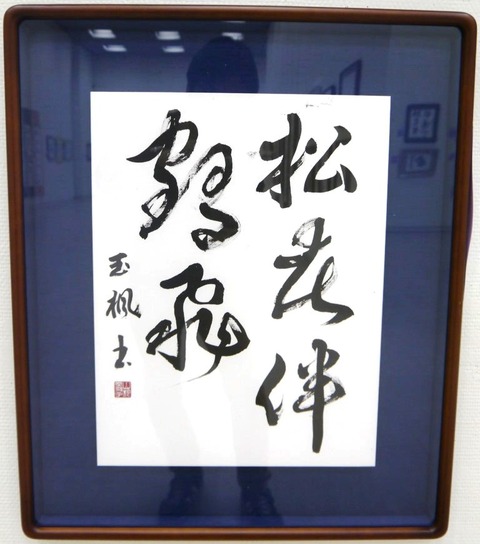 松花伴
鶴飛
玉楓書